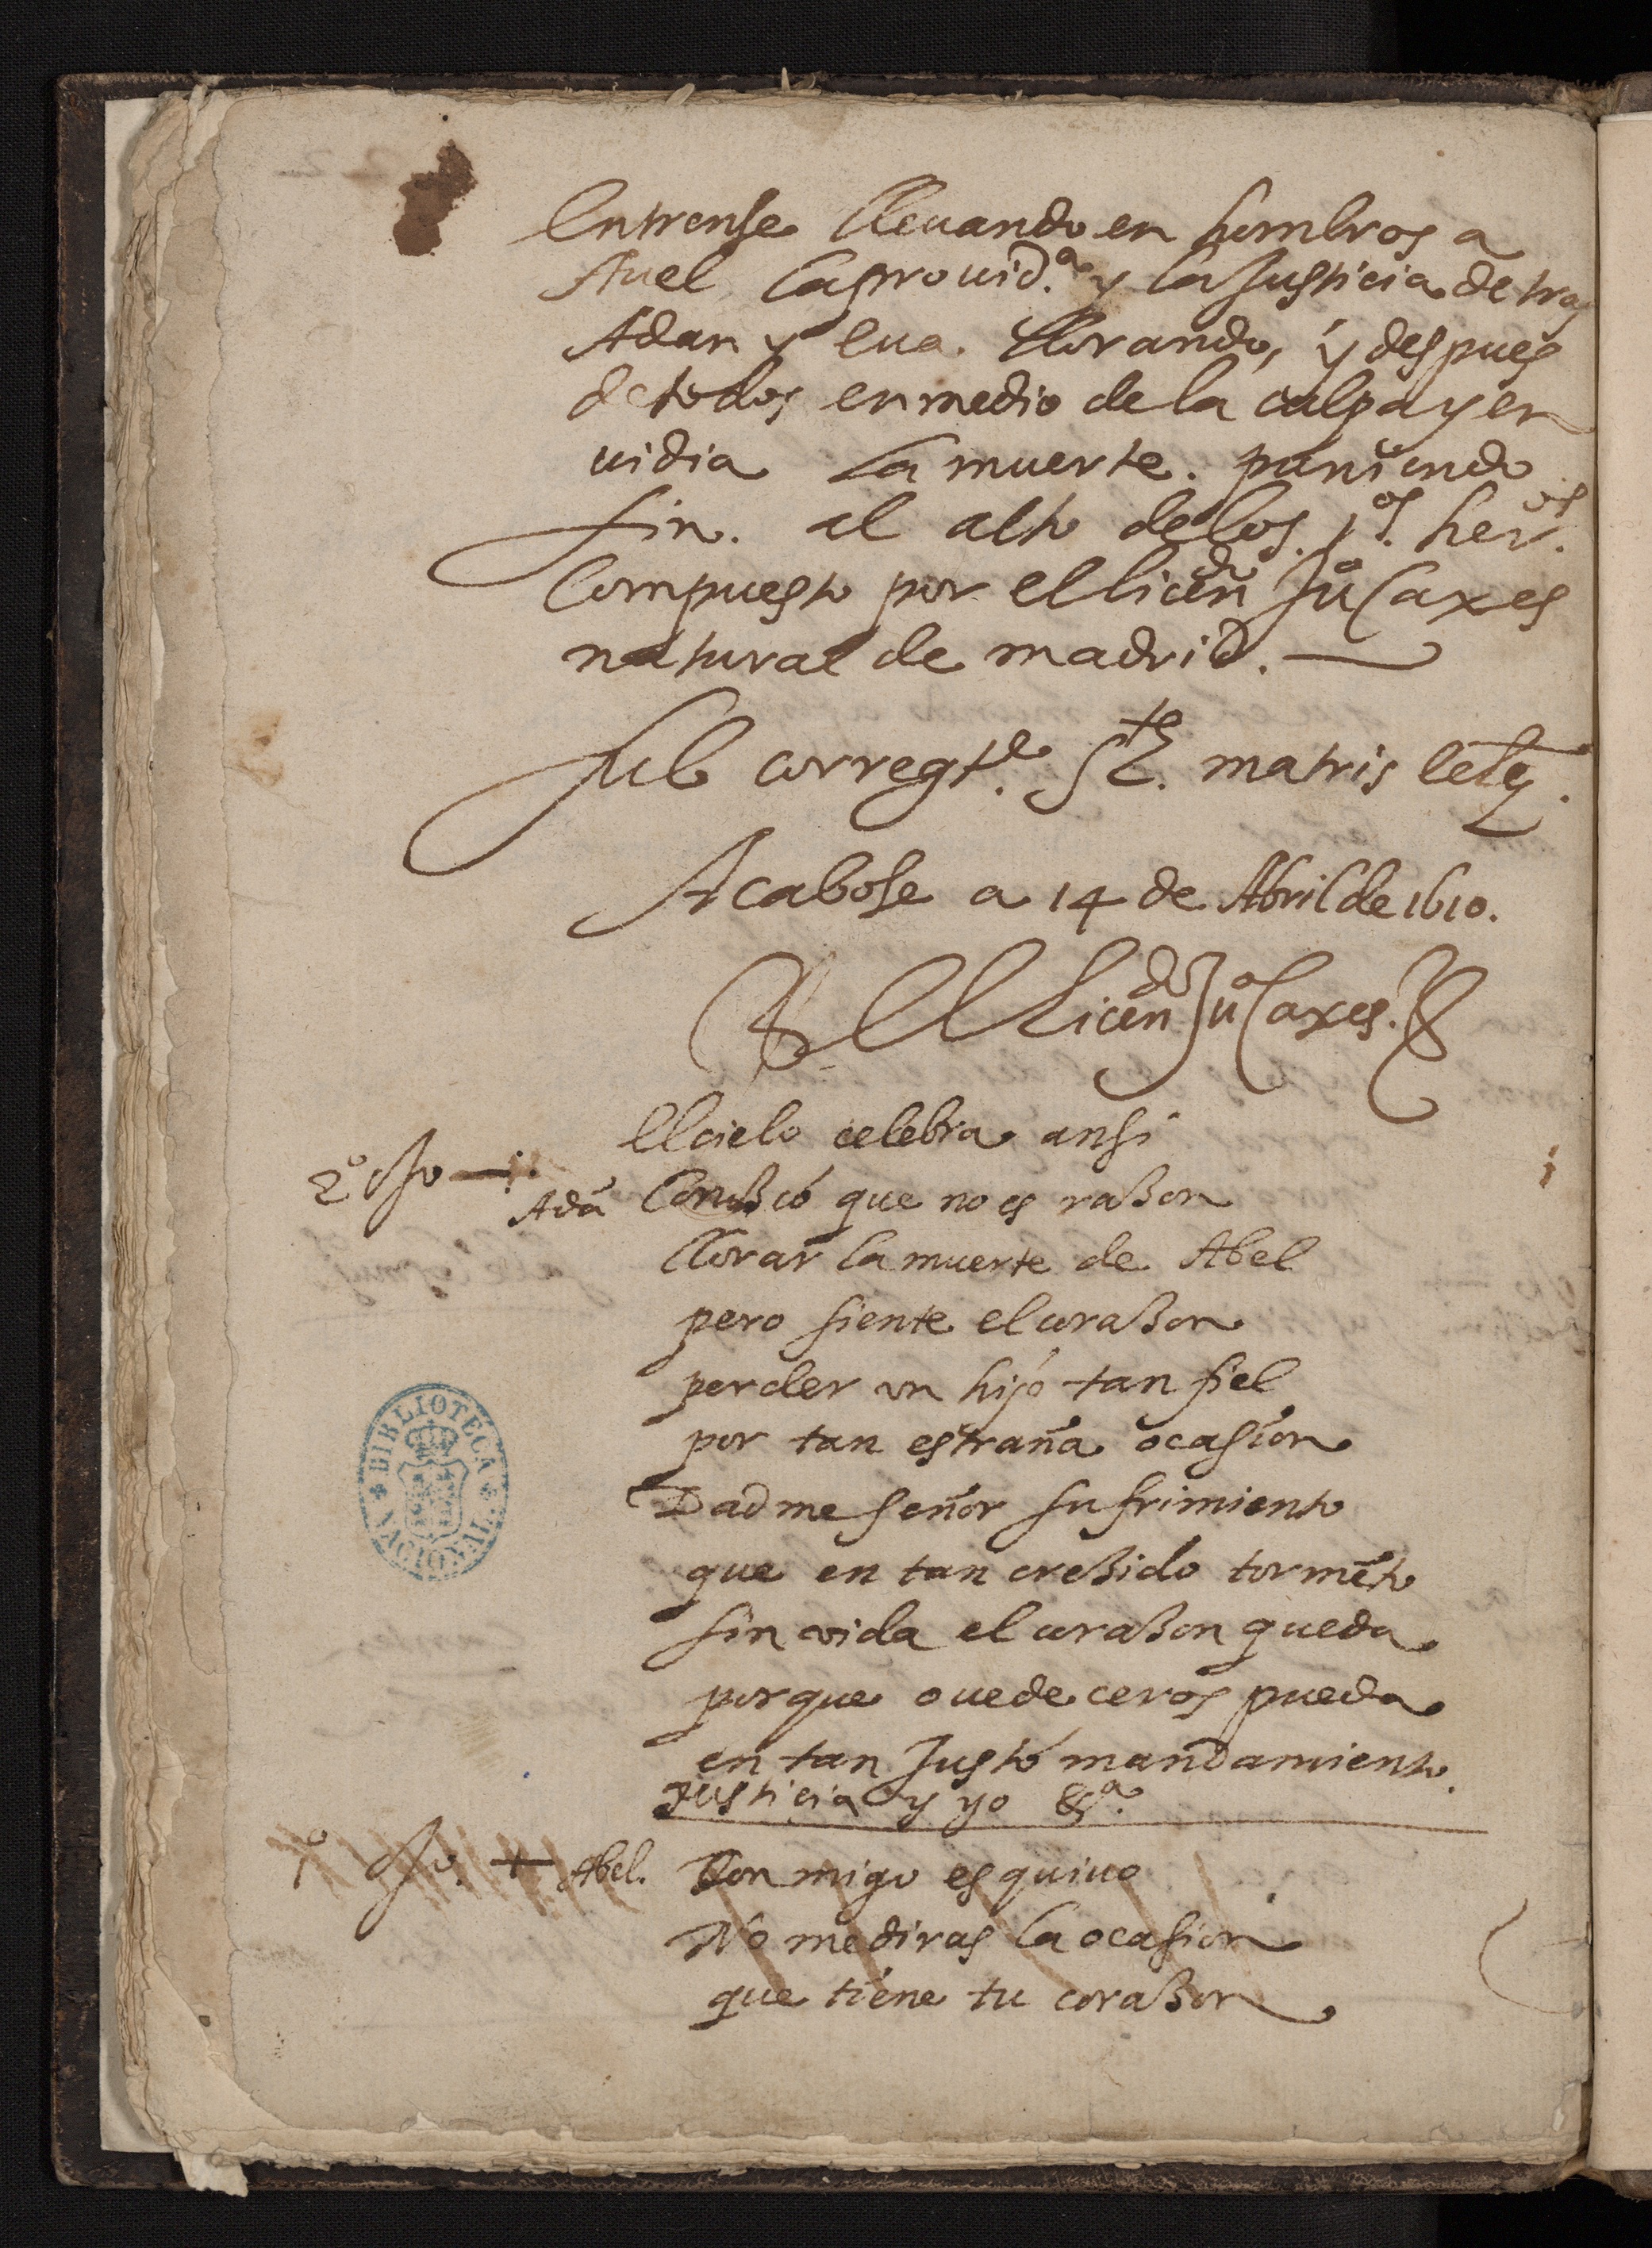 Entrense lleuando en hombros a
Auel la prouid.ª y la Justicia detras
Adan y Eua. llorando, y despues
de todos en medio de la culpa y en
uidia la muerte. poniendo
fin. al alto de los. p.os her.os
Compuesto por el licen.do Juº Caxes
natural de madrid.
Sub corregt.e S.te matris
Acabose a 14 de Abril de 1610.
El Licen.do Juº Caxes.
El cielo celebra ansi
2º
Adã Conozco que no es razon
llorar la muerte de Abel
pero siente el corazon
perder un hijo tan fiel
por tan estraña ocasion
Dadme señor sufrimiento
que en tan crezido tormẽto
sin vida el corazon queda
porque ouedeceros pueda
en tan Justo mandamiento.
Justicia y yo &ª.
1º Abel. Conmigo esquiuo
No me diras la ocasion
que tiene tu corazon
BIBLIOTECA NACIONAL